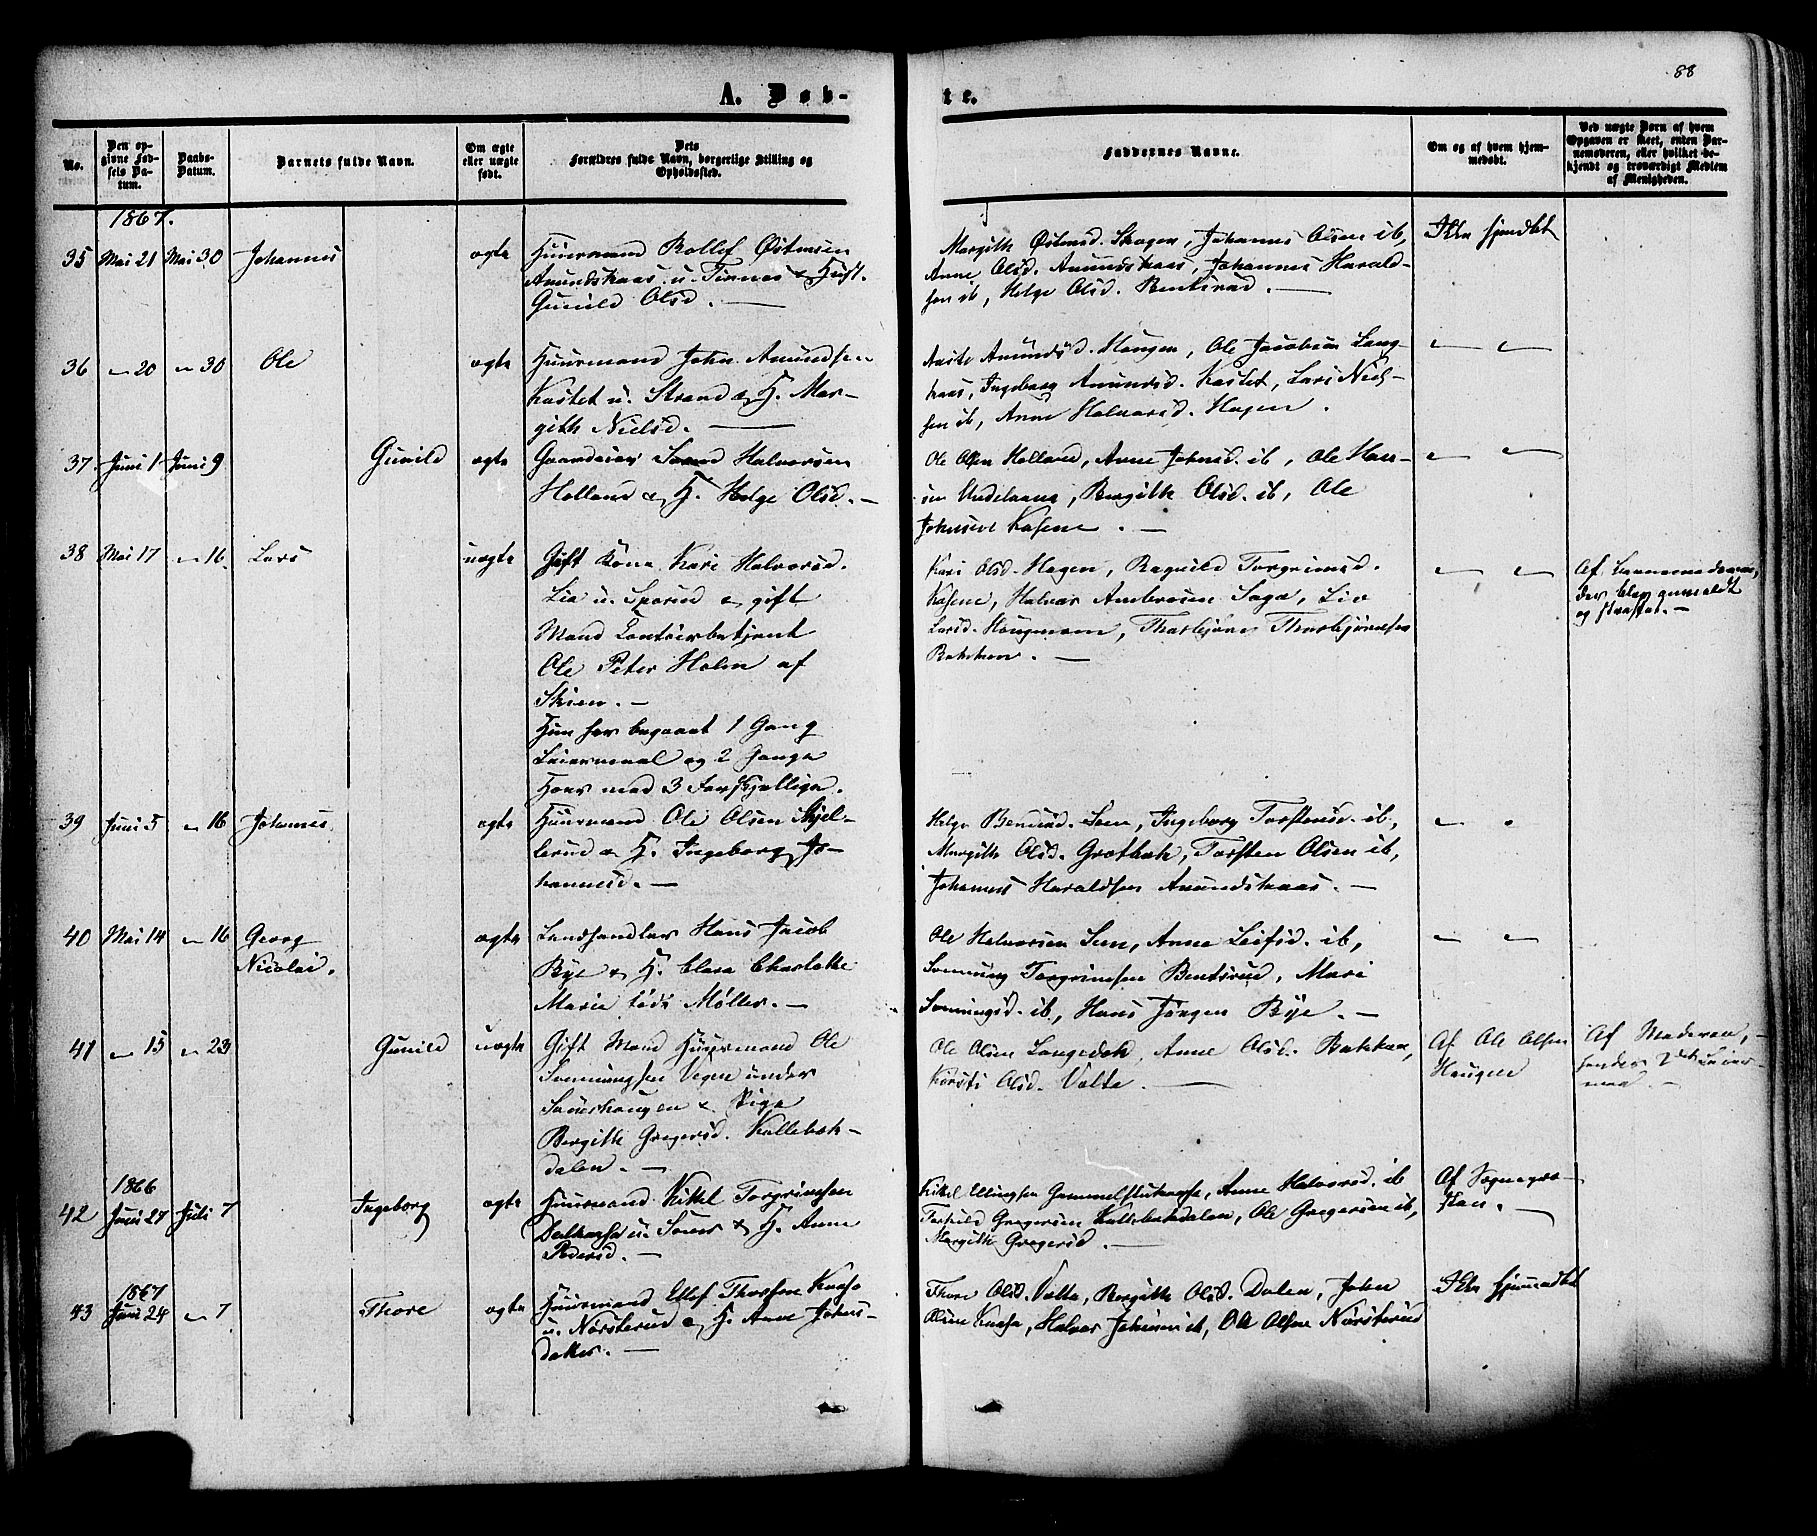 88
A. Døb-
te.
No.
Den opgivne Fødsels Datum.
Daabs-Datum.
Barnets fulde Navn.
Om ægte eller uægte født.
Dets Forældres fulde Navn, borgerlige Stilling og Opholdssted.
Faddernes Navne.
Om og af hvem hjemmedøbt.
Ved uægte Børn af hvem Opgaven er skeet, enten Barnemoderen, eller hvilket bekjendt og troværdigt Medlem af Menigheden.
1867.
35 Mai 21 Mai 30 Johannes ægte Huusmand Rollef Østensen
Amundskaas u. Tinnes & Hust.
Gunild Olsd. —
Margith Østensd. Skogen, Johannes Olsen ib,
Anne Olsd. Amundskaas, Johannes Harald-
sen ib, Helge Olsd. Bentsrud. —
Ikke hjmdbt
36 " 20 " 30 Ole ægte Huusmand John Amundsen
Kastet u. Strand & H. Mar-
gith Nielsd. —
Aaste Amundsd. Haugen, Ole Jacobsen Lang-
kaas, Ingeborg Amundsd. Kastet, Lars Niel-
sen ib, Anne Halvorsd. Hagen.
" "
37 Juni 1 Juni 9 Gunild ægte Gaardeier Svend Halvorsen
Holland & H. Helge Olsd. —
Ole Olsen Holland, Anne Johnsd. ib, Ole Han-
sen, Bergith Olsd. ib, Ole
Johnsen Kasene. —
" "
38 Mai 17 " 16 Lars uægte Gift Kone Kari Halvorsd.
Lia u. Sporud & gift
Mand Contoirbetjent
Ole Peter Holm af
Skien. —
Hun har begaaet 1 Gang
Leiermaal og 2 Gange
Hoer med 3 Forskjellige.
Kari Olsd. Hagen, Ragnild Torgrimsd.
Kasene, Halvor Ambrosen Saga, Liv
Larsd. Haugmoen, Thorbjørn Thorbjørnsen
Bakken. —
" "
Af Barnemoderen,
der blev anmeldt
og straffet. —
39 Juni 5 " 16 Johannes ægte Huusmand Ole Olsen Skjel-
lerud & H. Ingeborg Jo-
hannesd. —
Helge Bendixd. Sem, Ingeborg Torstensd. ib,
Margith Olsd. Grotbæk, Torsten Olsen ib,
Johannes Haraldsen Amundskaas. —
" "
40 Mai 14 " 16 Georg
Nicolai. ægte Landhandler Hans Jacob
Bye & H. Clara Charlotte
Marie født Møller. —
Ole Halvorsen Sem, Anne Leifsd. ib,
Sonnung Torgrimsen Bentsrud, Mari
Sonnungsd. ib, Hans Jørgen Bye. —
" "
41 " 15 " 23 Gunild uægte Gift Mand Huusmand Ole
Sonnungsen Vegne under
Saueshaugen & Pige
Bergith Gregersd. Kallebæk-
dalen. —
Ole Olsen Langedok, Anne Olsd. Bakken,
Kirsti Olsd. Valte. —
Af Ole Olsen
Haugen
Af Moderen,
hendes 2det Leier-
maal. —
1866
42 Juni 27 Juli 7 Ingeborg ægte Huusmand Kittel Torgrimsen
Dalkaasa u. Sauer & H. Anne
Pedersd. —
Kittel Ellingsen Gammelstukaasa, Anne Halvorsd. ib
Torkild Gregersen Kallebækdalen, Ole Gregersen ib,
Margith Gregersd. —
Af Sognepræ-
sten. —
1867
43 Juni 24 " 7 Thore ægte Huusmand Ellef Thorsen Kaasa
u. Nørsterud & H. Anne Johns-
datter. —
Thore Olsd. Valte, Bergith Olsd. Dalen, John
Olsen Kaasa, Halvor Johnsen ib, Ole Olsen Nørsterud
Ikke hjemmedbt